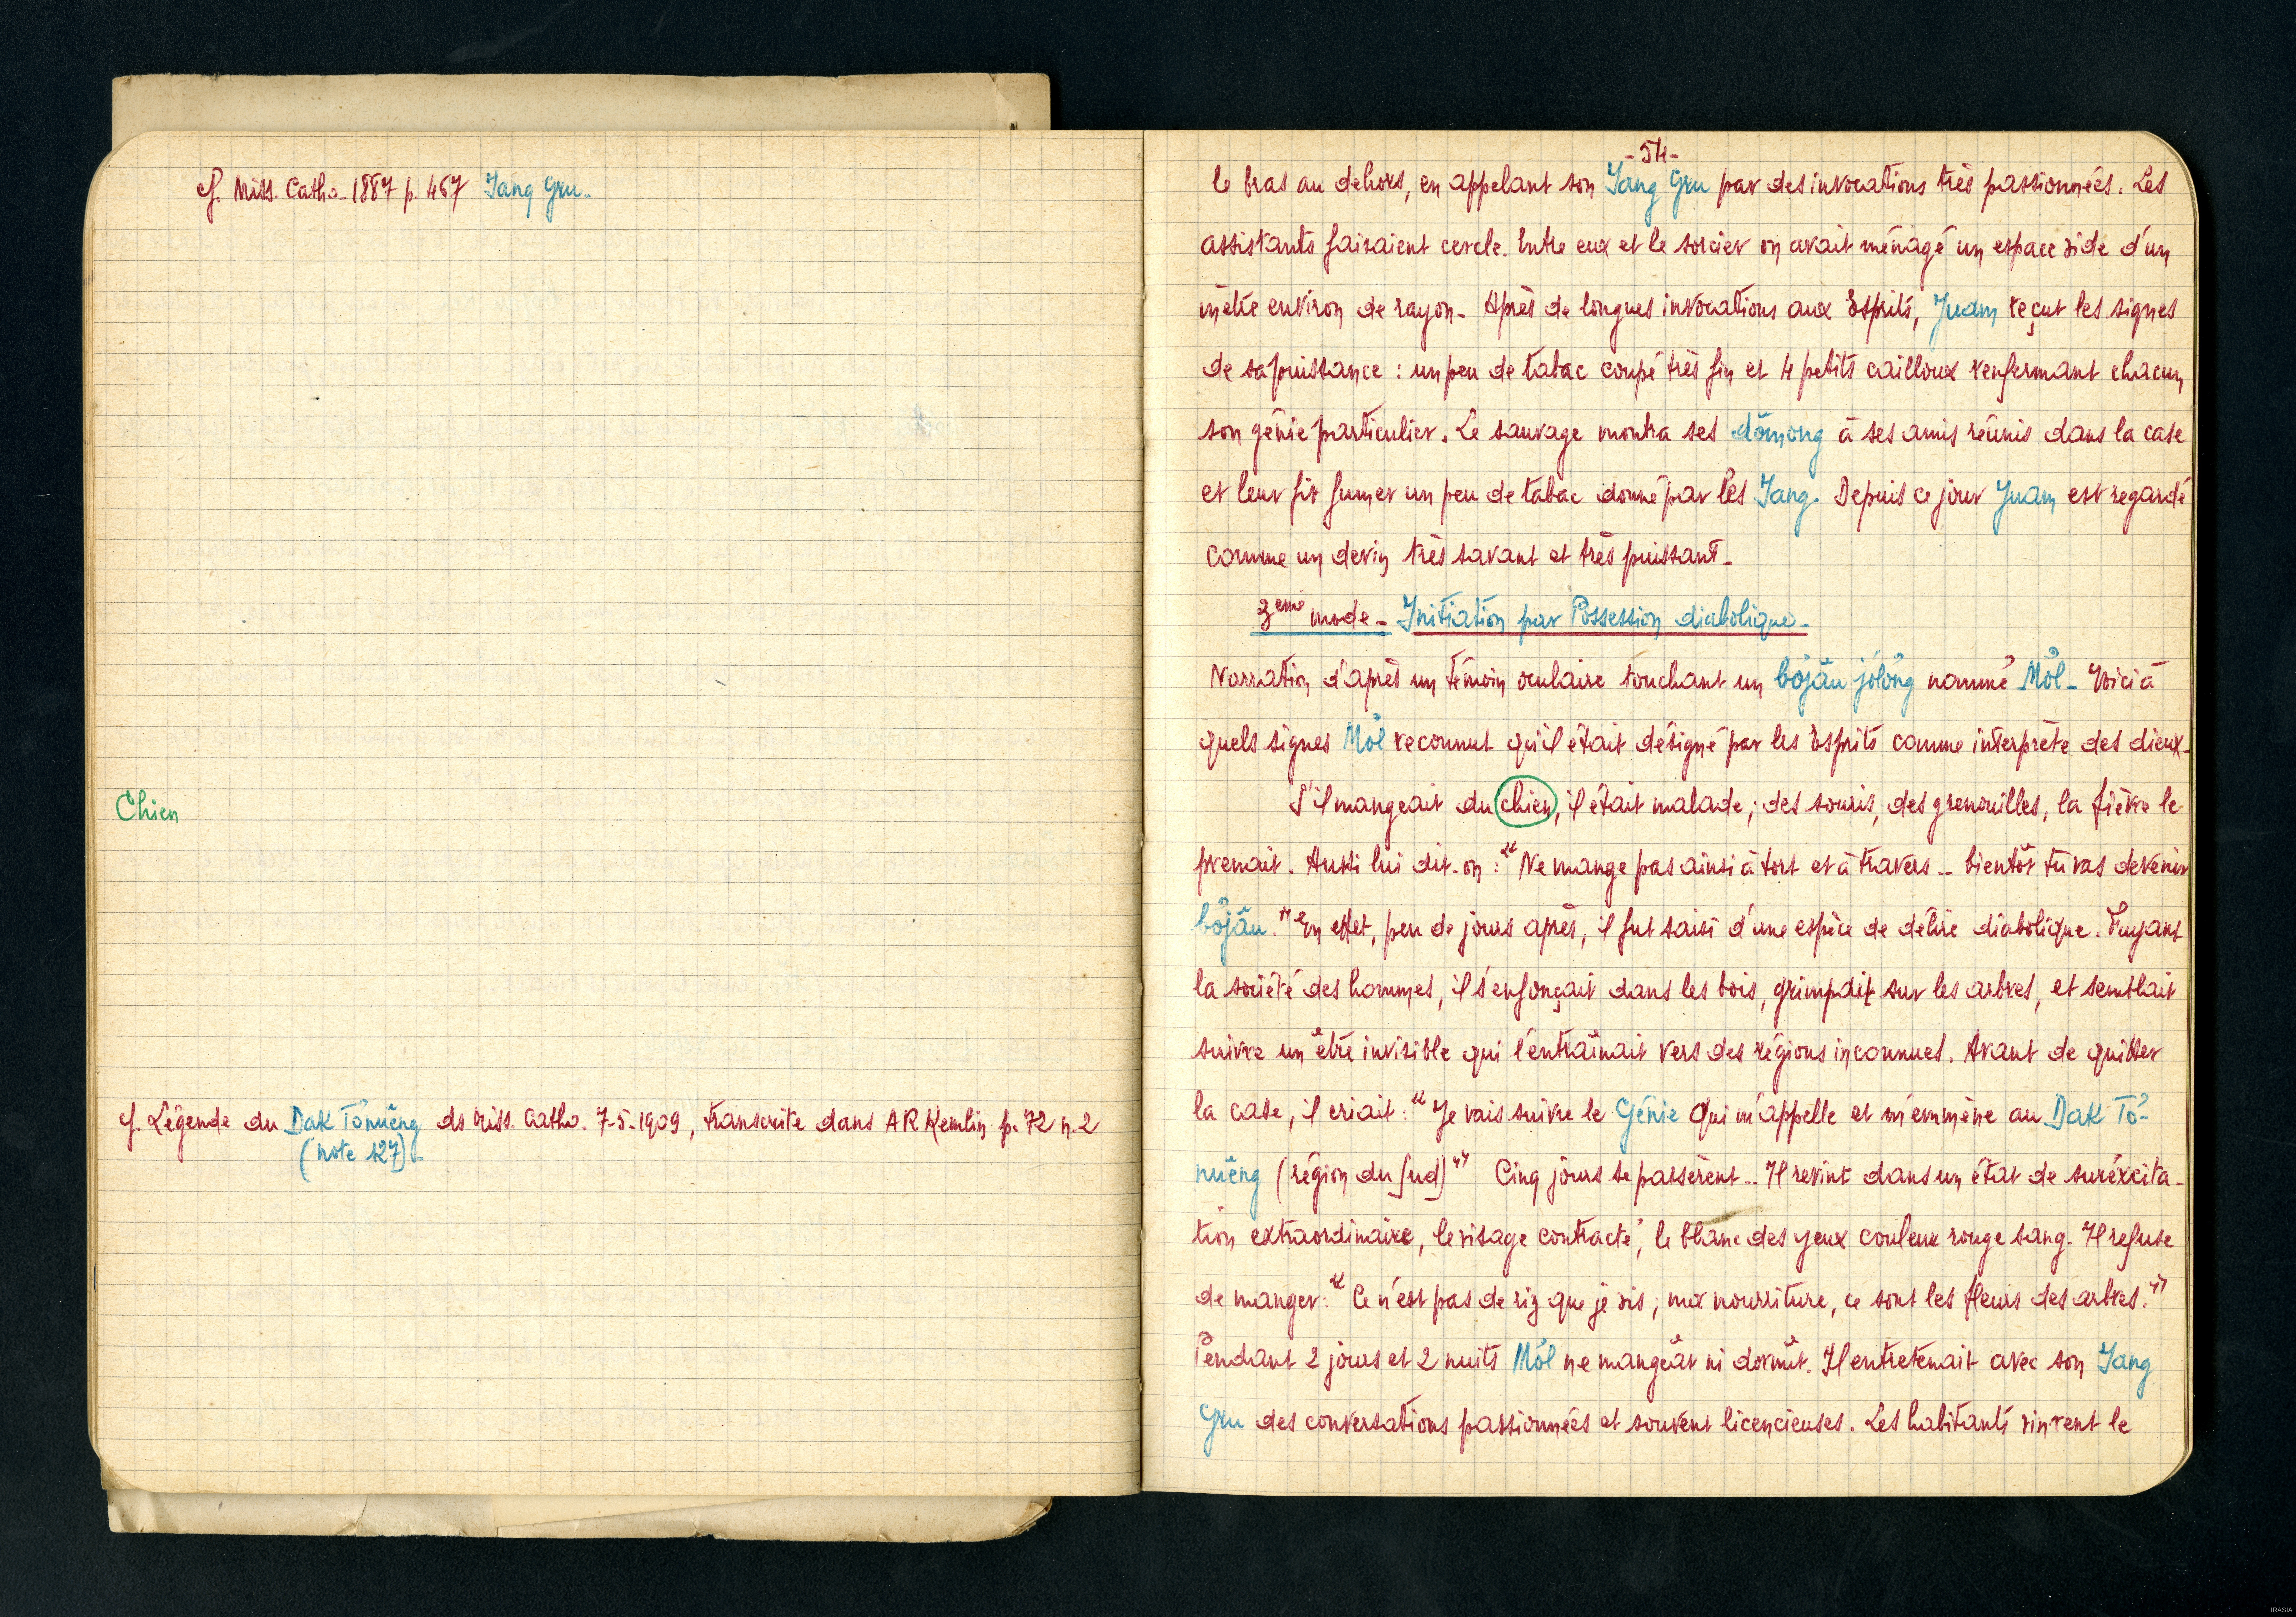 cf. Miss. Catho. 1887 p. 467 Jang Gru.
Chien
cf. Légende du Dak Tonuĕng ds Miss. Catho. 7-5-1909, transcrite dans AR Kemlin p. 72 n. 2
(note 127).
- 54 -
le bras au dehors, en appelant son Jang Gru par des invocations très passionnées. Les
assistants faisaient cercle. Entre eux et le sorcier on avait ménagé un espace vide d'un
mètre environ de rayon - Après de longues invocations aux Esprits, Juam reçut les signes
de sa puissance : un peu de tabac coupé très fin et 4 petits cailloux renfermant chacun
son génie particulier. Le sauvage montra ses dŏmong à ses amis réunis dans la case
et leur fit fumer un peu de tabac donné par les Jang. Depuis ce jour Juam est regardé
comme un devin très savant et très puissant -
3ème mode - Initiation par Possession diabolique -
Narration d'après un témoin oculaire touchant un bơjâu jơlong nommé Môl - Voici à
quels signes Môl reconnut qu'il était désigné par les Esprits comme interprète des dieux -
S'il mangeait du chien, il était malade ; des souris, des grenouilles, la fièvre le
prenait. Aussi lui dit-on : "Ne mange pas ainsi à tort et à travers .. bientôt tu vas devenir
bơjâu." En effet, peu de jours après, il fut saisi d'une espèce de délire diabolique. Fuyant
la société des hommes, il s'enfonçait dans les bois, grimpait sur les arbres, et semblait
suivre un être invisible qui l'entraînait vers des régions inconnues. Avant de quitter
la case, il criait : "Je vais suivre le Génie qui m'appelle et m'emmène au Dak To-
nuĕng (région du Sud)" Cinq jours se passèrent .. Il revint dans un état de suréxcita-
tion extraordinaire, le visage contracté, le blanc des yeux couleur rouge sang. Il refuse
de manger : "Ce n'est pas de riz que je vis ; ma nourriture, ce sont les fleurs des arbres."
Pendant 2 jours et 2 nuits Môl ne mangeât ni dormît. Il entretenait avec son Jang
Gru des conversations passionnées et souvent licencieuses. Les habitants vinrent le